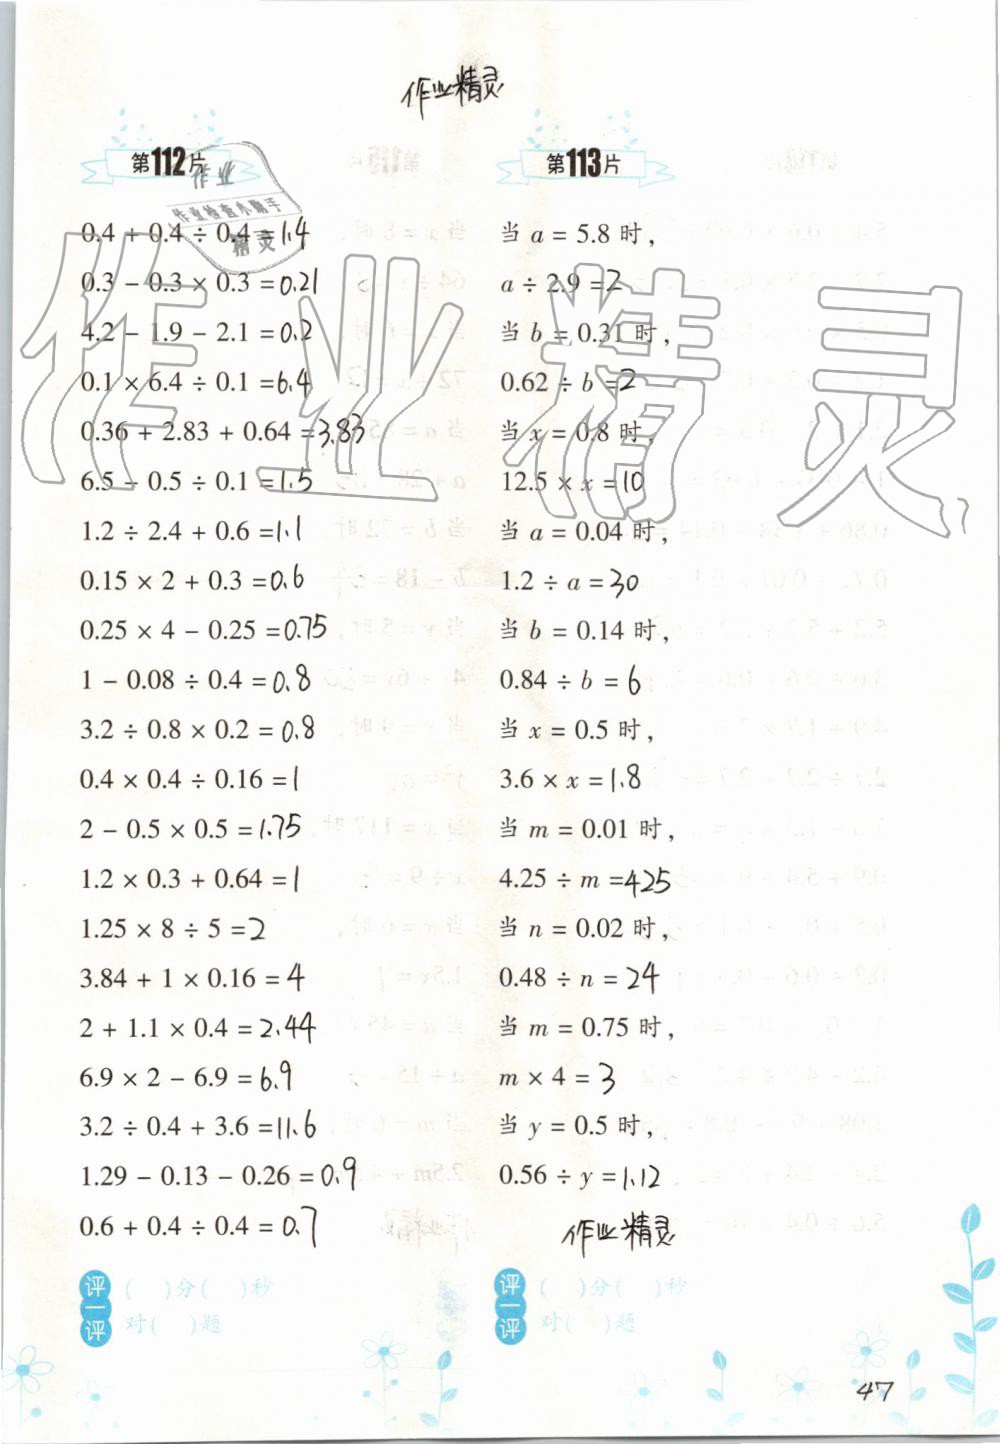 作业精灵
第112片
作业
作业检查小助手
精灵
0.4 + 0.4 ÷ 0.4 = 1.4
0.3 − 0.3 × 0.3 = 0.21
4.2 − 1.9 − 2.1 = 0.2
0.1 × 6.4 ÷ 0.1 = 6.4
0.36 + 2.83 + 0.64 = 3.83
6.5 − 0.5 ÷ 0.1 = 1.5
1.2 ÷ 2.4 + 0.6 = 1.1
0.15 × 2 + 0.3 = 0.6
0.25 × 4 − 0.25 = 0.75
1 − 0.08 ÷ 0.4 = 0.8
3.2 ÷ 0.8 × 0.2 = 0.8
0.4 × 0.4 ÷ 0.16 = 1
2 − 0.5 × 0.5 = 1.75
1.2 × 0.3 + 0.64 = 1
1.25 × 8 ÷ 5 = 2
3.84 + 1 × 0.16 = 4
2 + 1.1 × 0.4 = 2.44
6.9 × 2 − 6.9 = 6.9
3.2 ÷ 0.4 + 3.6 = 11.6
1.29 − 0.13 − 0.26 = 0.9
0.6 + 0.4 ÷ 0.4 = 0.7
评一评
( )分( )秒
对( )题
第113片
当 a = 5.8 时，
a ÷ 2.9 = 2
当 b = 0.31 时，
0.62 ÷ b = 2
当 x = 0.8 时，
12.5 × x = 10
当 a = 0.04 时，
1.2 ÷ a = 30
当 b = 0.14 时，
0.84 ÷ b = 6
当 x = 0.5 时，
3.6 × x = 1.8
当 m = 0.01 时，
4.25 ÷ m = 425
当 n = 0.02 时，
0.48 ÷ n = 24
当 m = 0.75 时，
m × 4 = 3
当 y = 0.5 时，
0.56 ÷ y = 1.12
作业精灵
评一评
( )分( )秒
对( )题
作业精灵
47